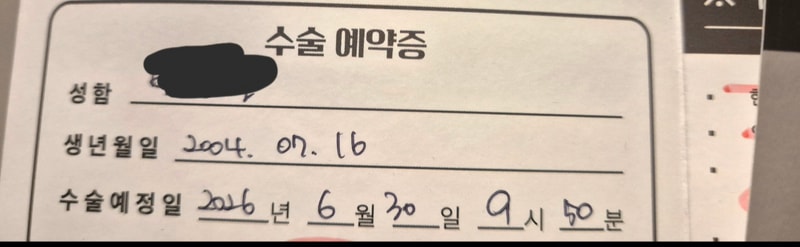 수술 예약증
성함
생년월일 2004. 07. 16
수술예정일 2026 년 6 월 30 일 9 시 50 분